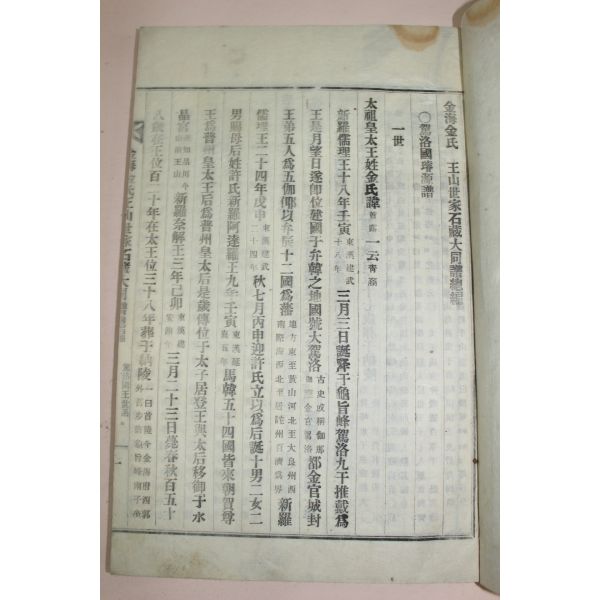 金海金氏 王山世家石藏大同譜總編
○駕洛國璿源譜
一世
太祖皇太王姓金氏諱首露一云青裔
新羅儒理王十八年壬寅東漢建武十八年三月三日誕降于龜旨峰駕洛九干推戴爲
王是月望日遂卽位建國于弁韓之地國號大駕洛古史或稱伽那伽耶金官駕洛都金官城封
王弟五人爲五伽倻以弁辰十二國爲藩地方東至黃山河北至大良州西南際海西北至居陀州百濟爲界新羅
儒理王二十四年戊申東漢建武二十四年秋七月丙申迎許氏立以爲后誕十男二女二
男賜母后姓許氏新羅阿達羅王九年壬寅東漢延熹五年馬韓五十四國皆來朝賀尊
王爲普州皇太王后爲普州皇太后是歲傳位于太子居登王與太后移御于水
晶宮 新羅奈解王三年己卯東漢建安四年三月二十三日薨春秋百五十
八歲在王位百二十年在太王位三十八年葬于納陵一曰首陵今金海府西郭外
金海金氏王山世家石譜大同譜總編
一